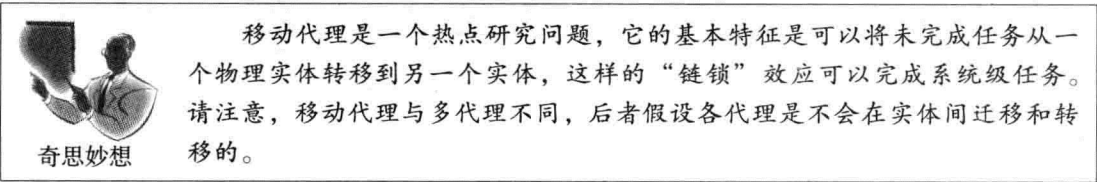 移动代理是一个热点研究问题，它的基本特征是可以将未完成任务从一
个物理实体转移到另一个实体，这样的“链锁”效应可以完成系统级任务。
请注意，移动代理与多代理不同，后者假设各代理是不会在实体间迁移和转
移的。
奇思妙想